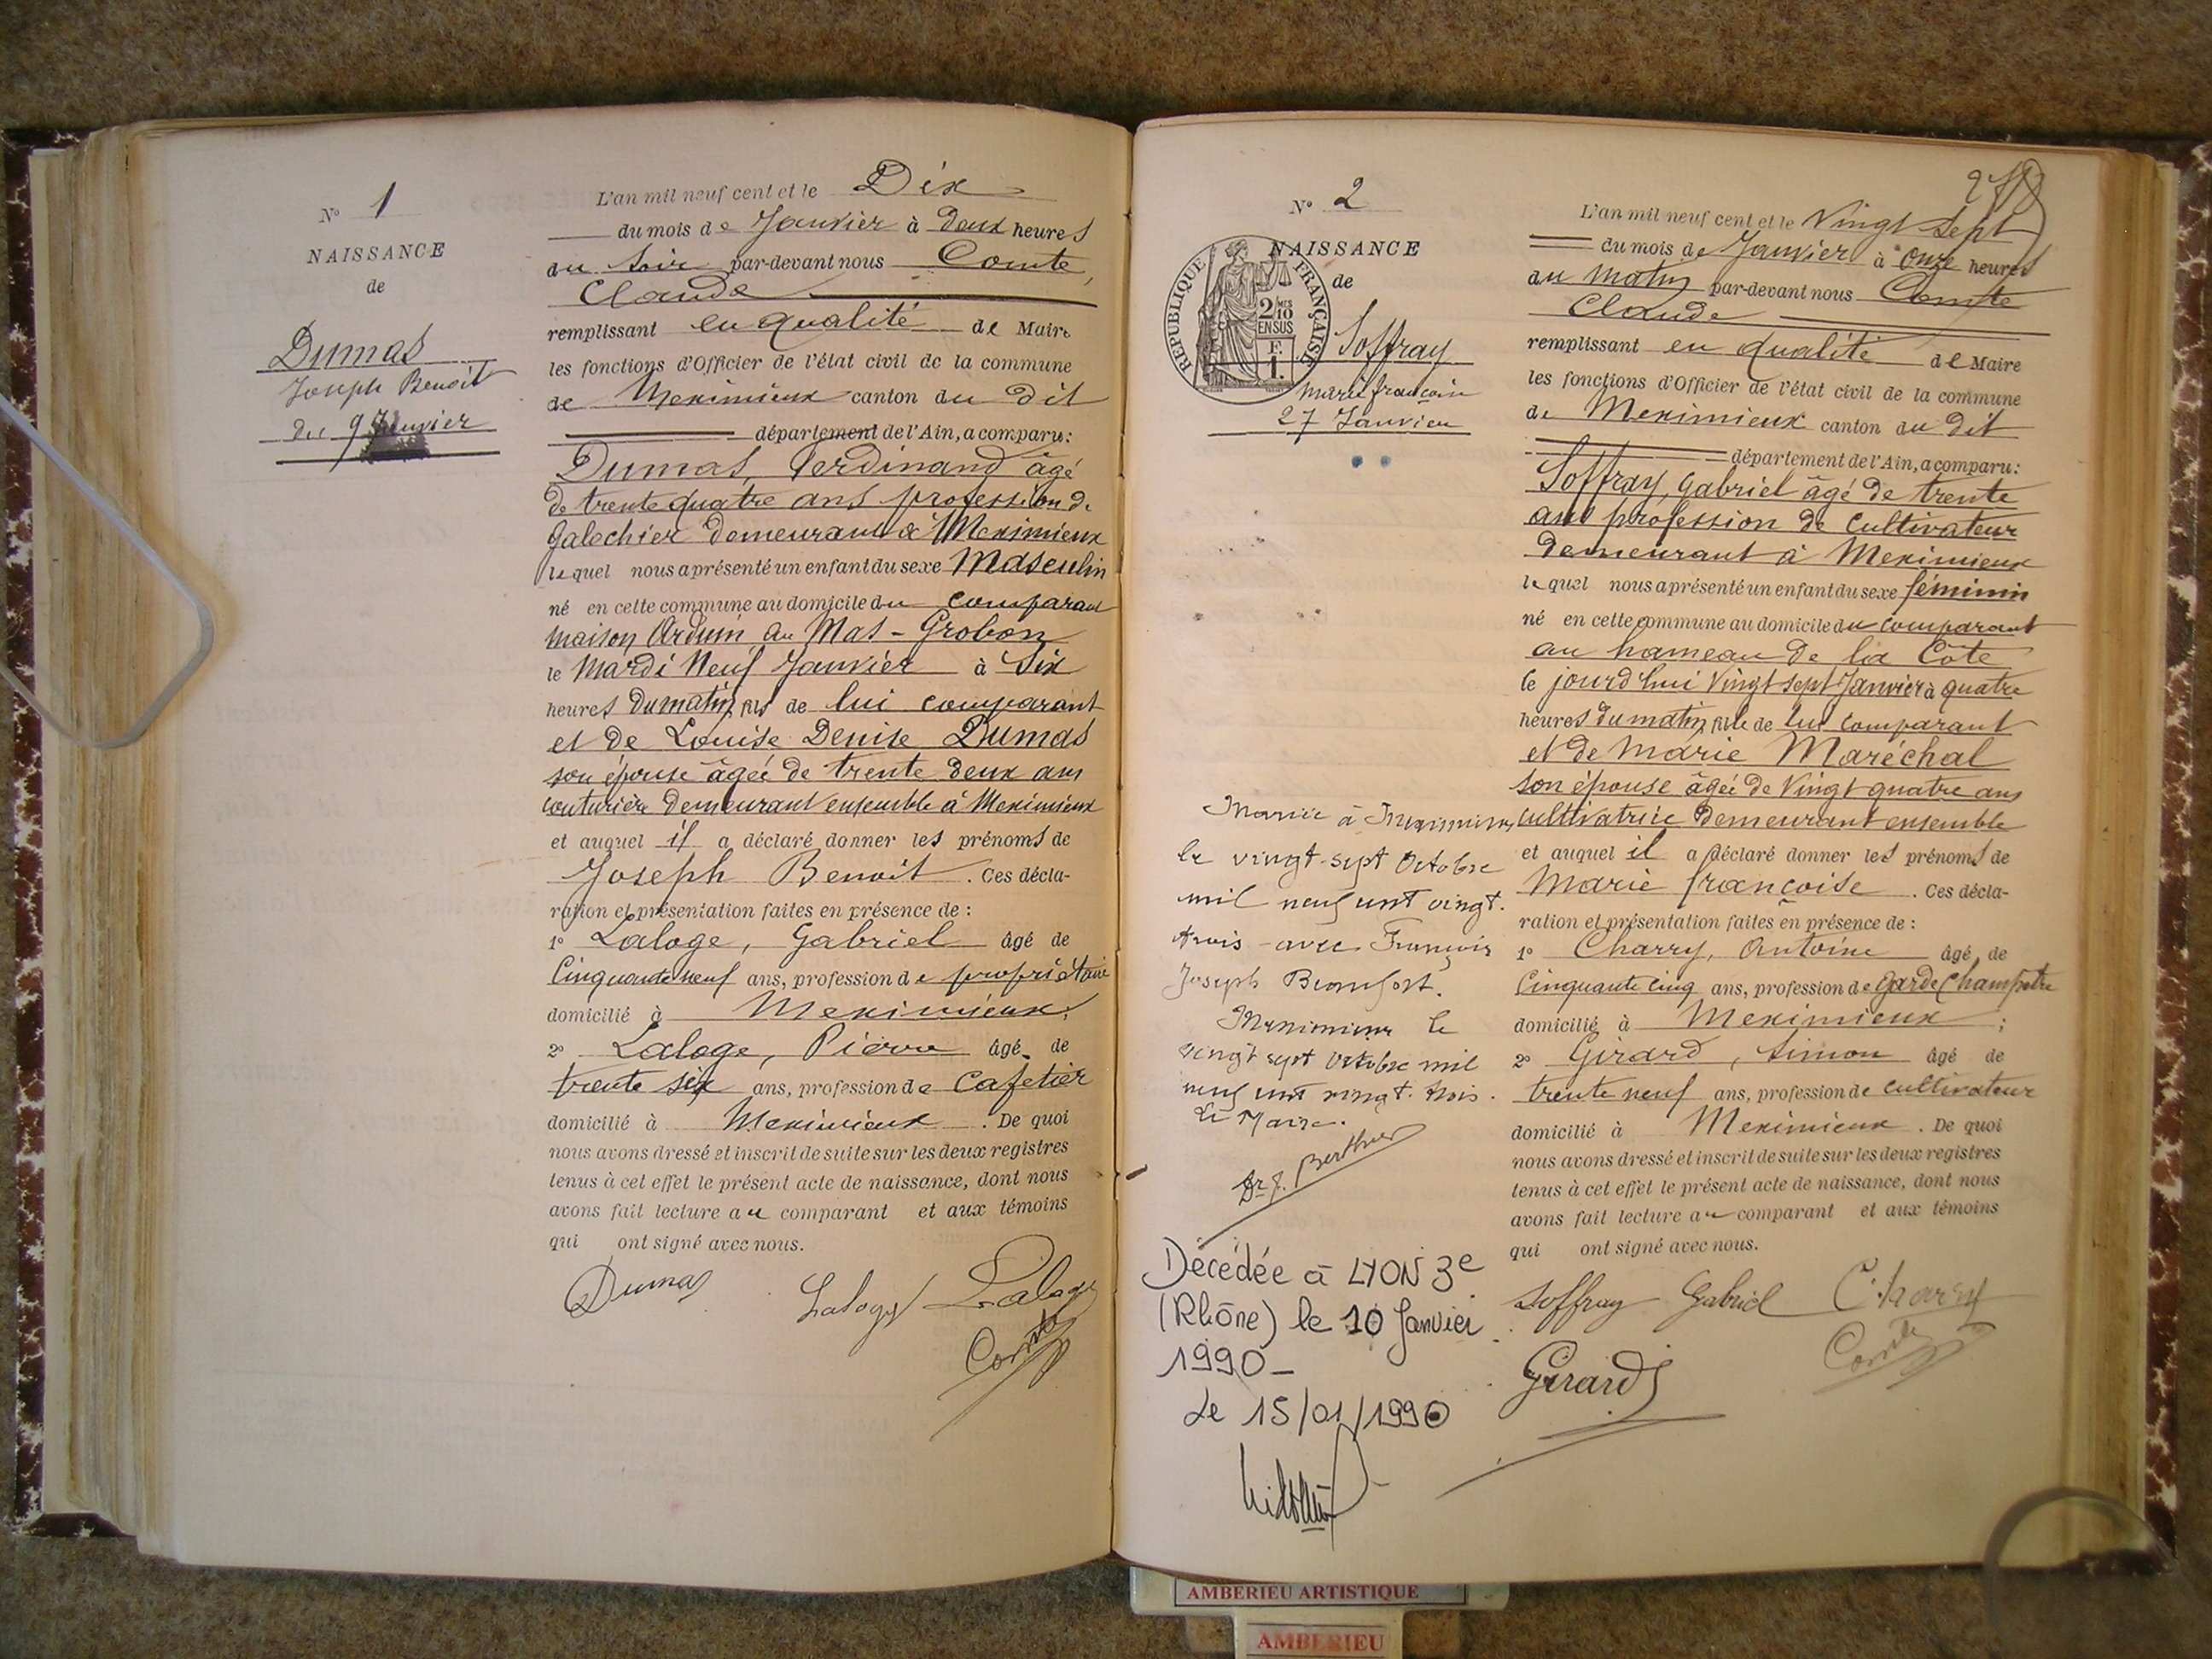 N° 1
NAISSANCE
de
Dumas
Joseph Benoit
du 9 Janvier
L'an mil neuf cent et le Dix
du mois de Janvier à deux heures
du soir par-devant nous Comte,
Claude
remplissant en qualité de Maire
les fonctions d'Officier de l'état civil de la commune
de Meximieux canton du dit
département de l'Ain, a comparu:
Dumas, Ferdinand âgé
de trente quatre ans profession de
Galochier demeurant à Meximieux
lequel nous a présenté un enfant du sexe Masculin
né en cette commune au domicile du comparant
maison Arduin au Mas-Grobon
le Mardi Neuf Janvier à Six
heures du matin, fils de lui comparant
et de Louise Denise Dumas
son épouse âgée de trente deux ans
couturière demeurant ensemble à Meximieux
et auquel il a déclaré donner les prénoms de
Joseph Benoit. Ces décla-
ration et présentation faites en présence de :
1° Laloge, Gabriel âgé de
Cinquante neuf ans, profession de propriétaire
domicilié à Meximieux;
2° Laloge, Pierre âgé de
trente six ans, profession de Cafetier
domicilié à Meximieux. De quoi
nous avons dressé et inscrit de suite sur les deux registres
tenus à cet effet le présent acte de naissance, dont nous
avons fait lecture au comparant et aux témoins
qui ont signé avec nous.
Dumas Laloge Laloge
Comte
N° 2
NAISSANCE
de
REPUBLIQUE FRANÇAISE
2/10 MES
EN SUS
F.
1.
Soffray
Marie françoise
27 Janvier
L'an mil neuf cent et le Vingt Sept
du mois de Janvier à Onze heures
du Matin par-devant nous Comte
Claude
remplissant en qualité de Maire
les fonctions d'Officier de l'état civil de la commune
de Meximieux canton du dit
département de l'Ain, a comparu:
Soffray, Gabriel âgé de trente
ans profession de Cultivateur
demeurant à Meximieux
lequel nous a présenté un enfant du sexe féminin
né en cette commune au domicile du comparant
au hameau de la Côte
le jourd'hui Vingt sept Janvier à quatre
heures du matin, fille de lui comparant
et de Marie Maréchal
son épouse âgée de Vingt quatre ans
cultivatrice demeurant ensemble
et auquel il a déclaré donner les prénoms de
Marie françoise. Ces décla-
ration et présentation faites en présence de :
1° Charry, Antoine âgé de
Cinquante cinq ans, profession de Garde Champêtre
domicilié à Meximieux;
2° Girard, Simon âgé de
trente neuf ans, profession de cultivateur
domicilié à Meximieux. De quoi
nous avons dressé et inscrit de suite sur les deux registres
tenus à cet effet le présent acte de naissance, dont nous
avons fait lecture au comparant et aux témoins
qui ont signé avec nous.
Soffray Gabriel Charry
Comte
Girard
Mariée à Meximieux
le vingt-sept Octobre
mil neuf cent vingt-
trois avec François
Joseph
Meximieux le
vingt sept Octobre mil
neuf cent vingt-trois.
Le Maire.
Dr J. Berthier
Décédée à LYON 3e
(Rhône) le 10 Janvier
1990_
Le 15/01/1990
AMBERIEU ARTISTIQUE
AMBERIEU